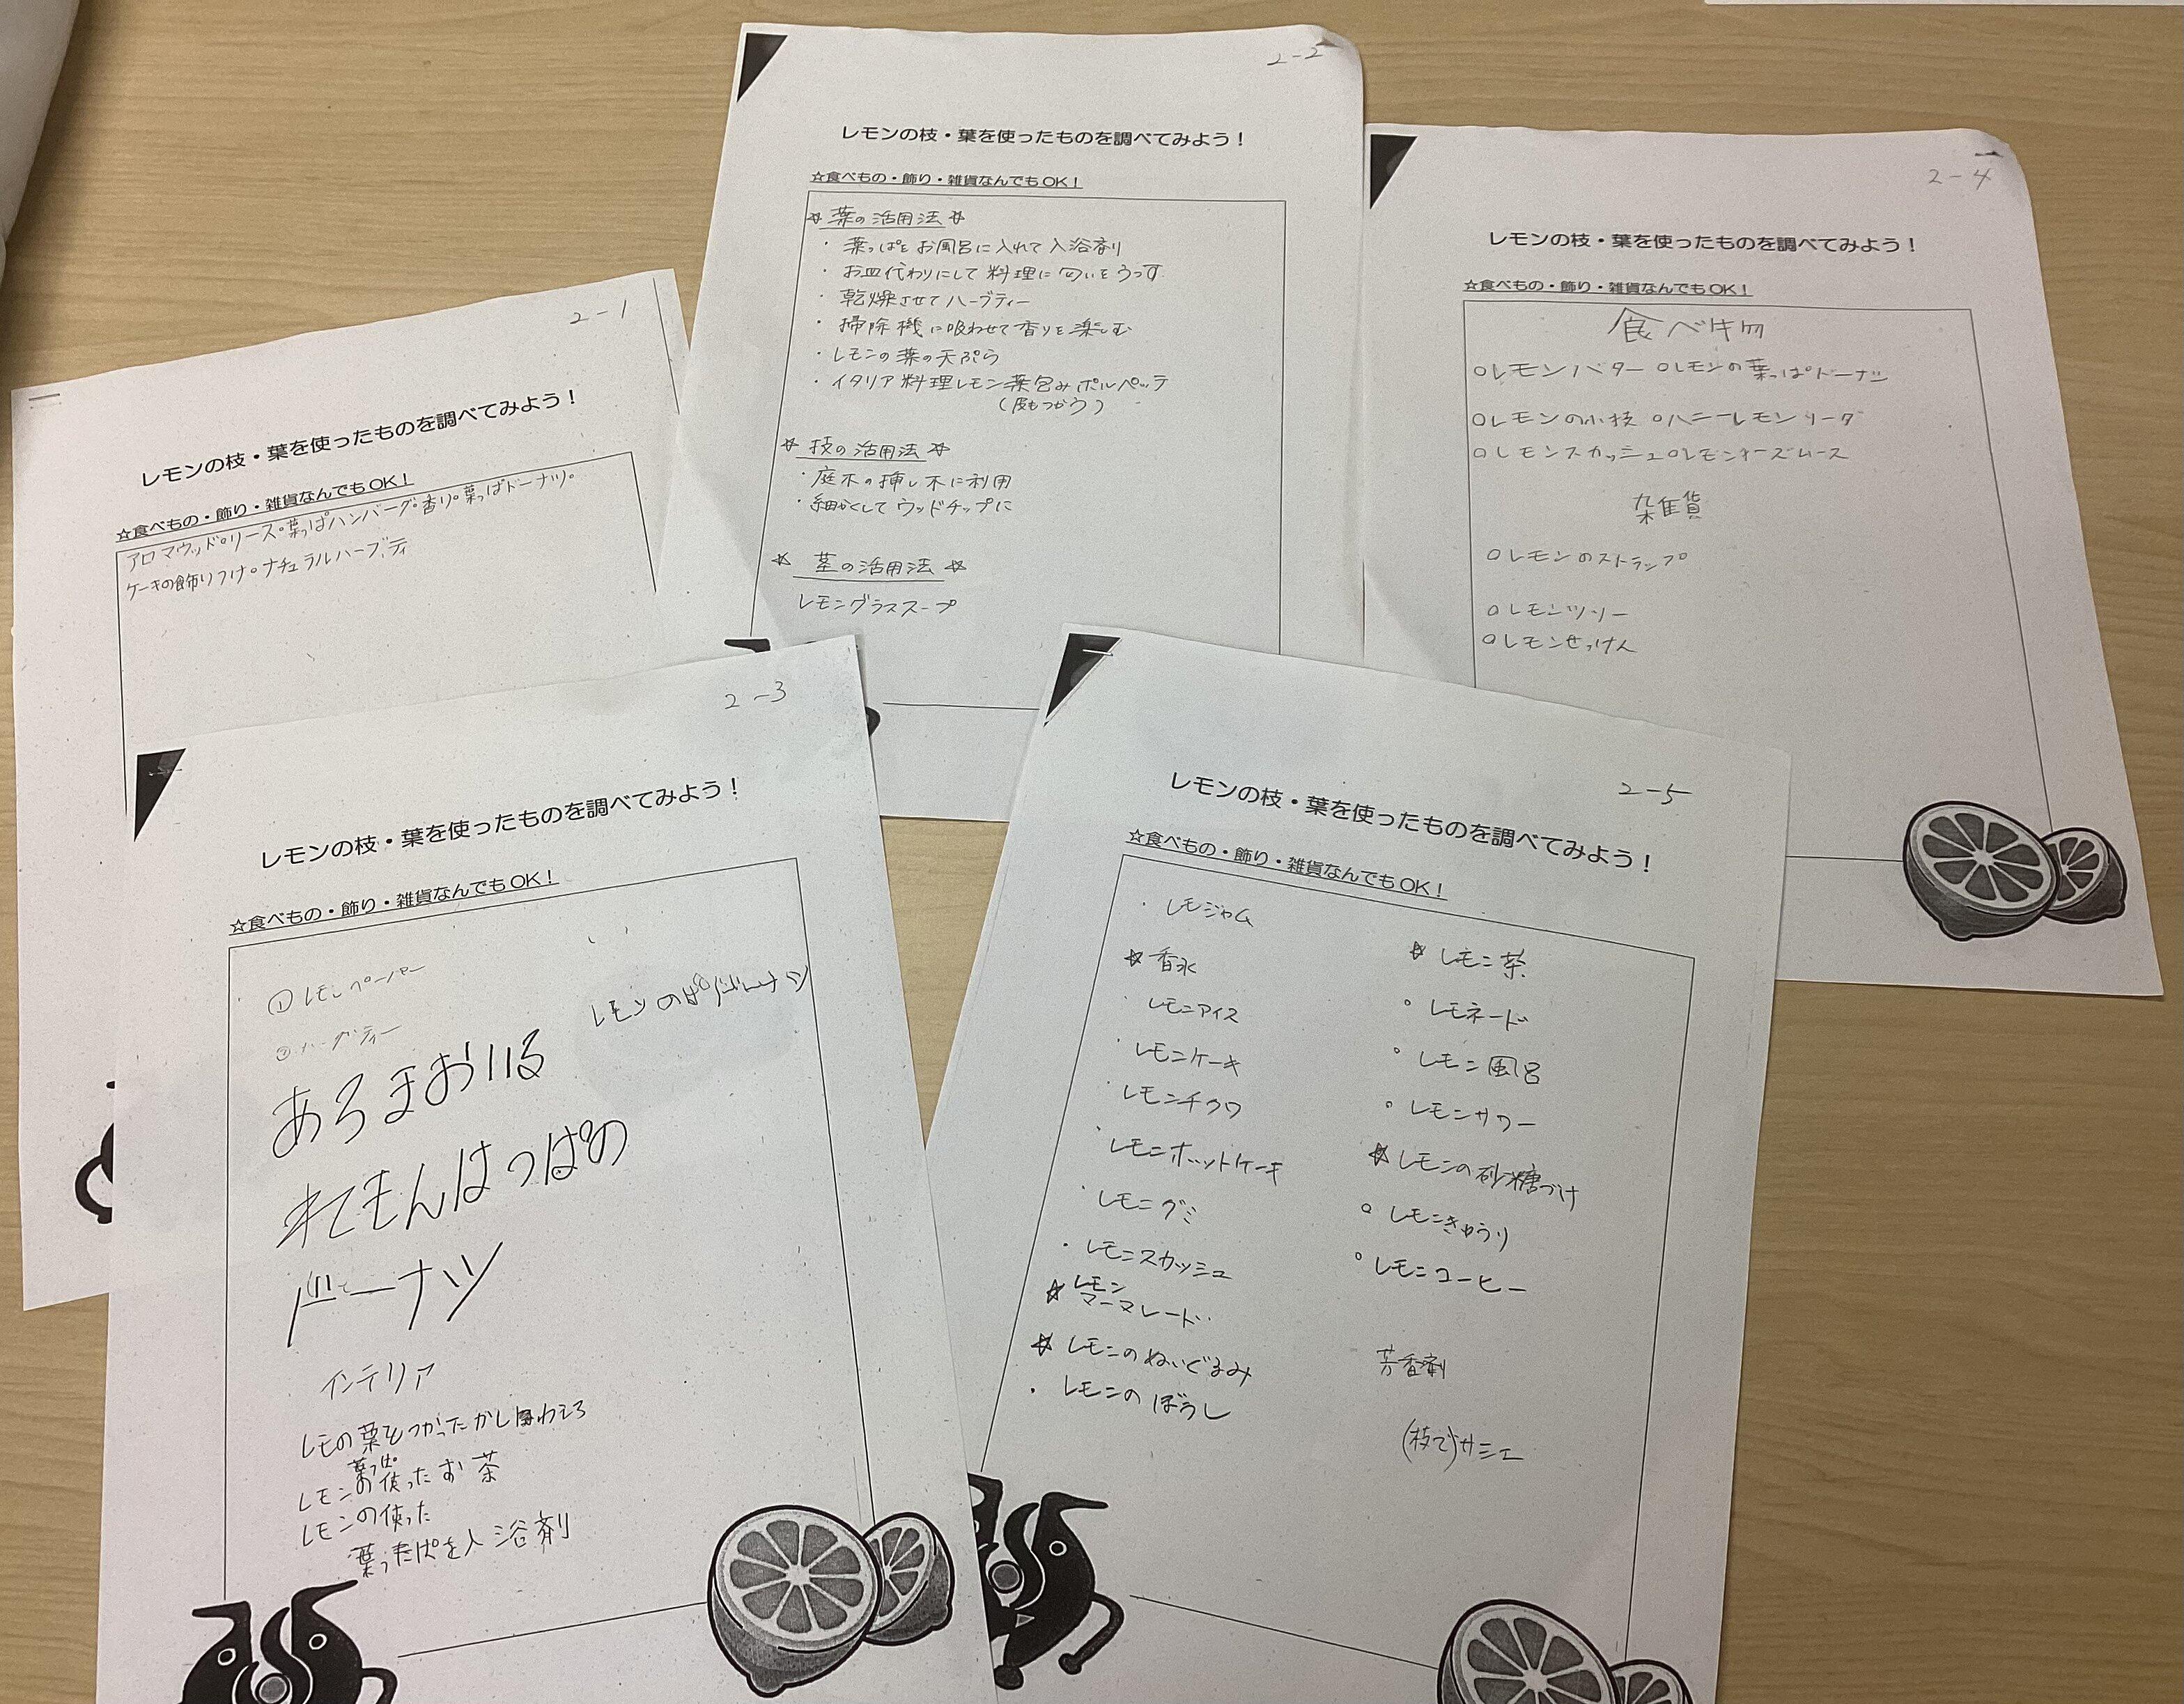 2-1
レモンの枝・葉を使ったものを調べてみよう！
☆食べもの・飾り・雑貨なんでもOK！
アロマウッド。リース。葉っぱハンバーグ。香り。葉っぱドーナツ。
ケーキの飾りつけ。ナチュラルハーブティ
2-2
レモンの枝・葉を使ったものを調べてみよう！
☆食べもの・飾り・雑貨なんでもOK！
☆葉の活用法☆
・葉っぱをお風呂に入れて入浴剤
・お皿代わりにして料理に匂いをうつす
・乾燥させてハーブティー
・掃除機に吸わせて香りを楽しむ
・レモンの葉の天ぷら
・イタリア料理レモン葉包みポルペッテ
(皮もつかう)
☆枝の活用法☆
・庭木の挿し木に利用
・細かくしてウッドチップに
☆茎の活用法☆
レモングラススープ
2-4
レモンの枝・葉を使ったものを調べてみよう！
☆食べもの・飾り・雑貨なんでもOK！
食べ物
○レモンバター ○レモンの葉っぱドーナツ
○レモンの小枝 ○ハニーレモンソーダ
○レモンスカッシュ○レモンチーズムース
雑貨
○レモンのストラップ
○レモンツリー
○レモンせっけん
2-3
レモンの枝・葉を使ったものを調べてみよう！
☆食べもの・飾り・雑貨なんでもOK！
① レモンペーパー
② ハーブティー
レモンのぱ
あろまおいる
れもんはっぱの
ドーナツ
インテリア
レモの葉をつかったかし
レモンの葉っぱ使ったお茶
レモンの使った
葉っぱを入浴剤
2-5
レモンの枝・葉を使ったものを調べてみよう！
☆食べもの・飾り・雑貨なんでもOK！
・レモジャム
☆香水
・レモンアイス
・レモンケーキ
・レモンチクワ
・レモンホットケーキ
・レモングミ
・レモンスカッシュ
☆レモン
マーマレード
☆レモンのぬいぐるみ
・レモンのぼうし
☆レモン茶
○レモネード
○レモン風呂
○レモンサワー
☆レモンの砂糖づけ
○レモンきゅうり
○レモンコーヒー
芳香剤
(枝で)サシェ